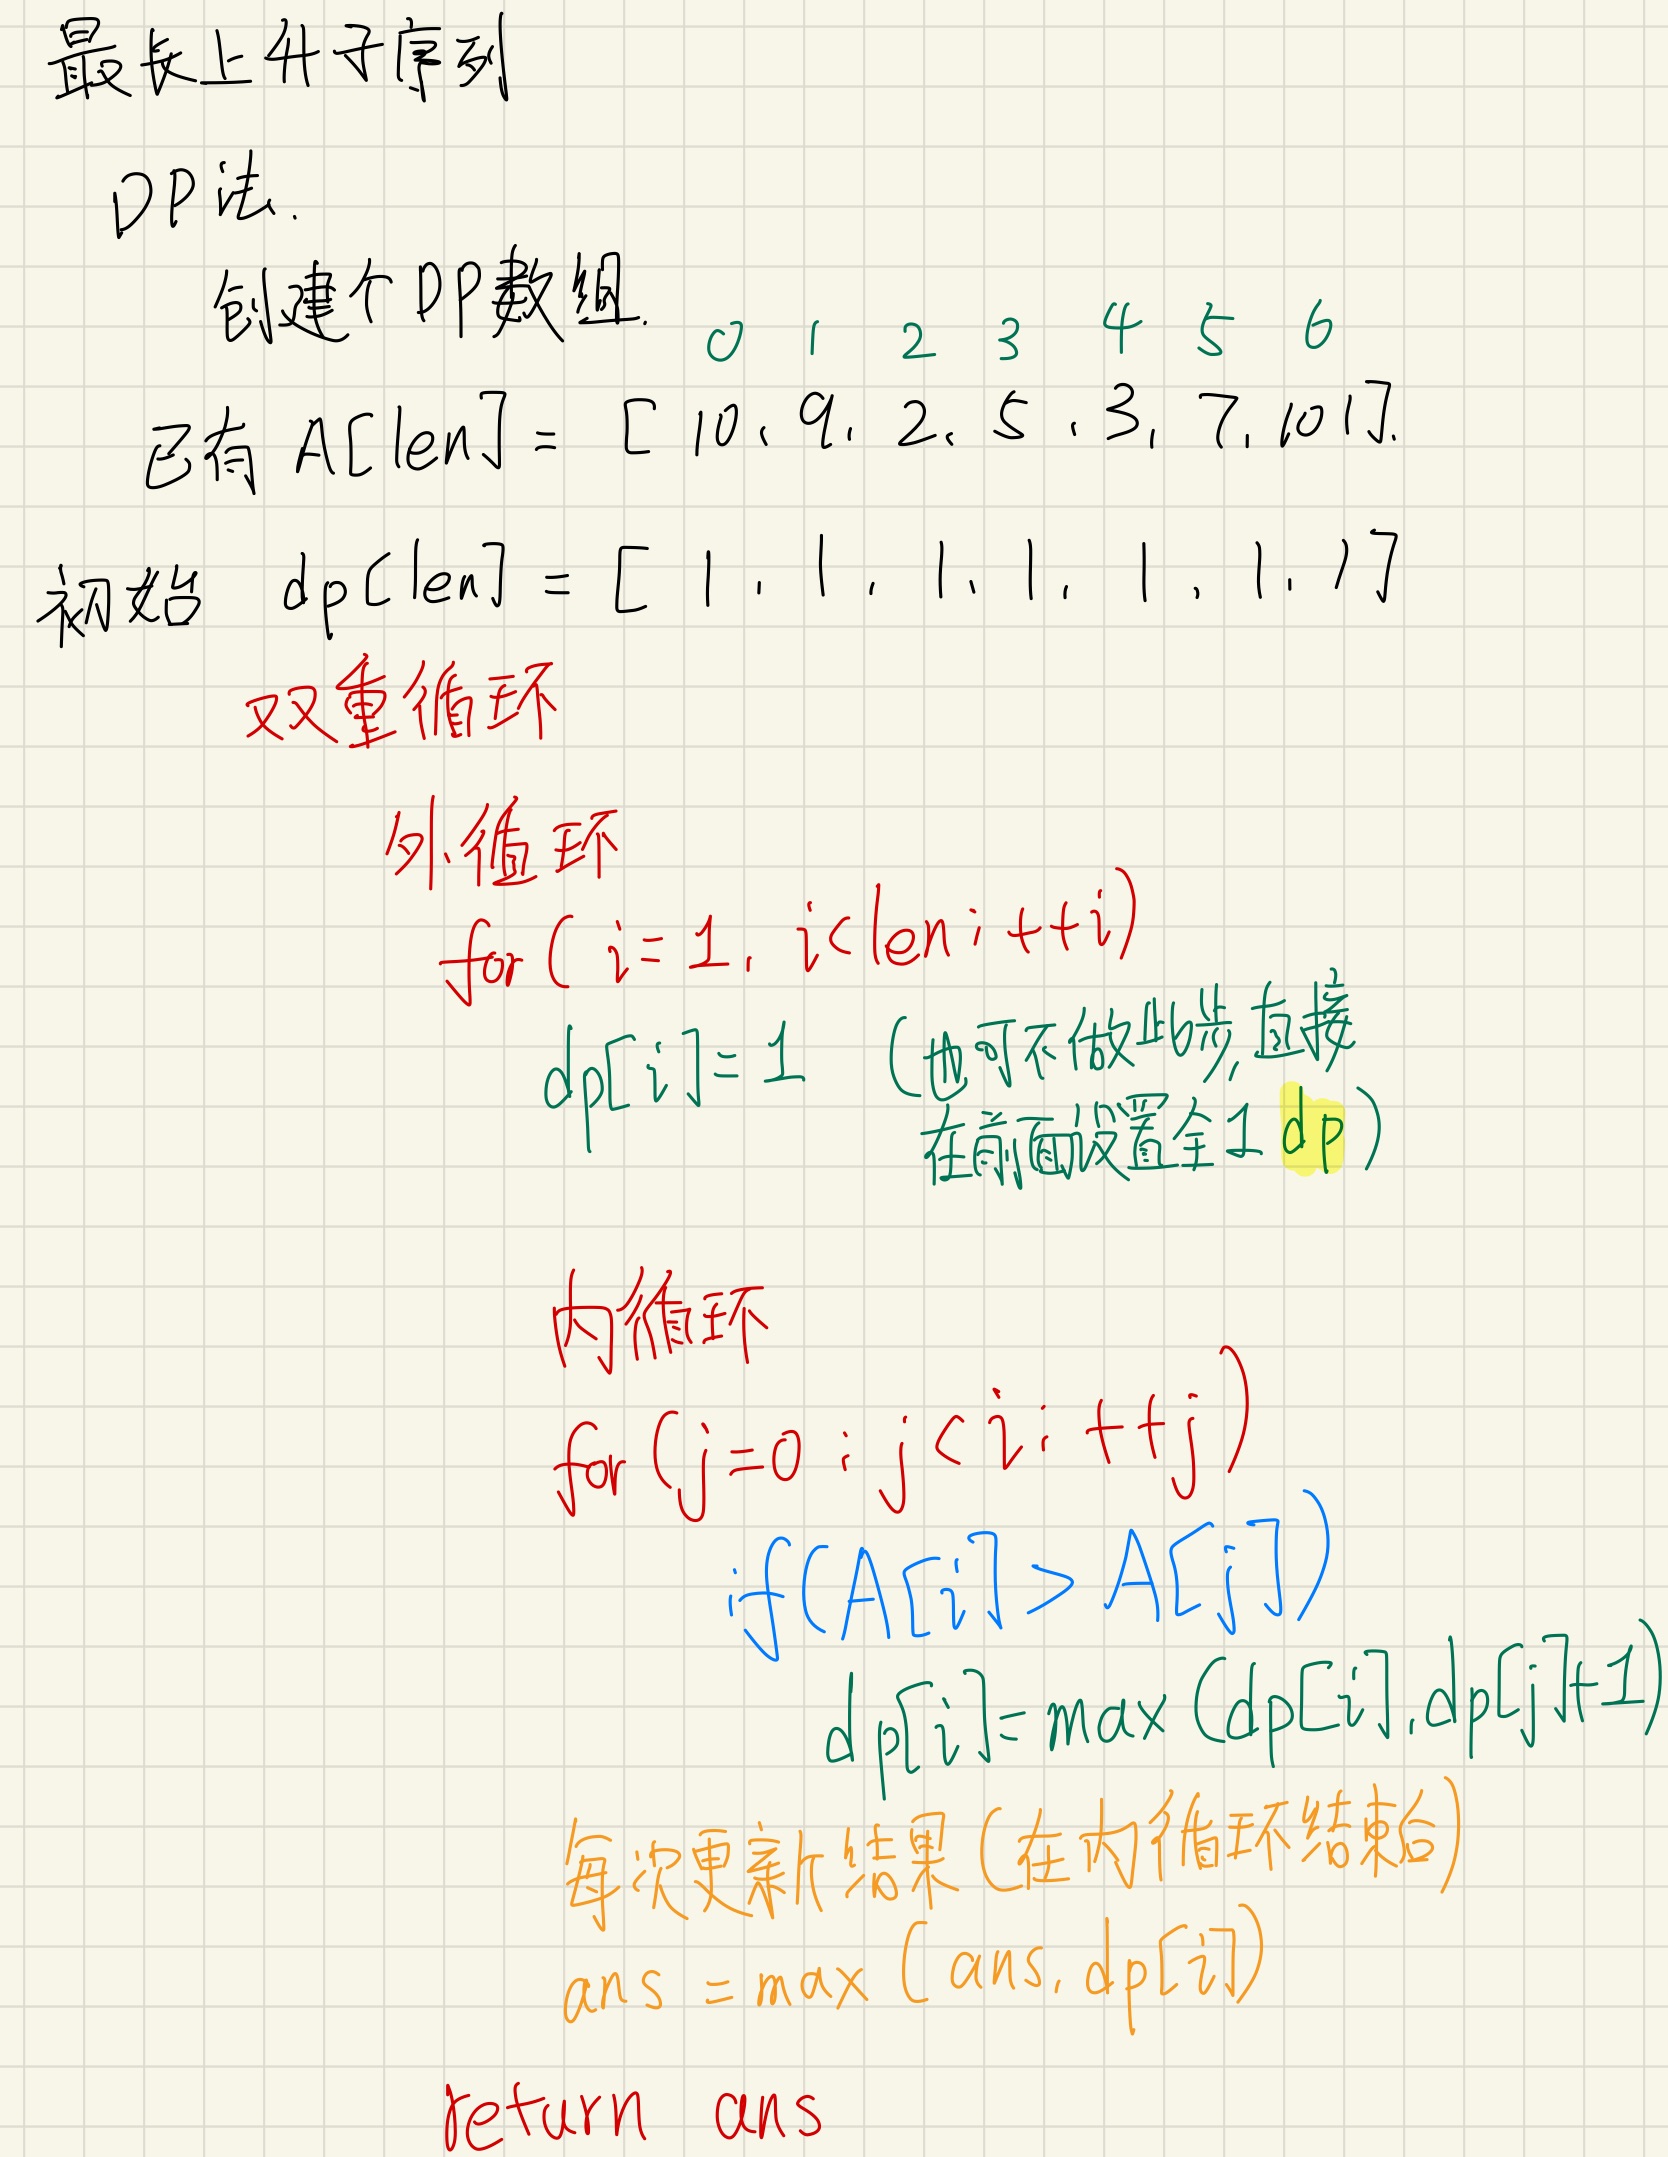 最长上升子序列
DP法.
创建个DP数组.
0 1 2 3 4 5 6
已有 A[len] = [10, 9, 2, 5, 3, 7, 101].
初始 dp[len] = [1, 1, 1, 1, 1, 1, 1]
双重循环
外循环
for( i=1, i<len; ++i)
dp[i]=1 (也可不做此步,直接
在前面设置全1 dp)
内循环
for(j=0; j<i; ++j)
if(A[i] > A[j])
dp[i]=max(dp[i],dp[j]+1)
每次更新结果(在内循环结束后)
ans = max(ans, dp[i])
return ans